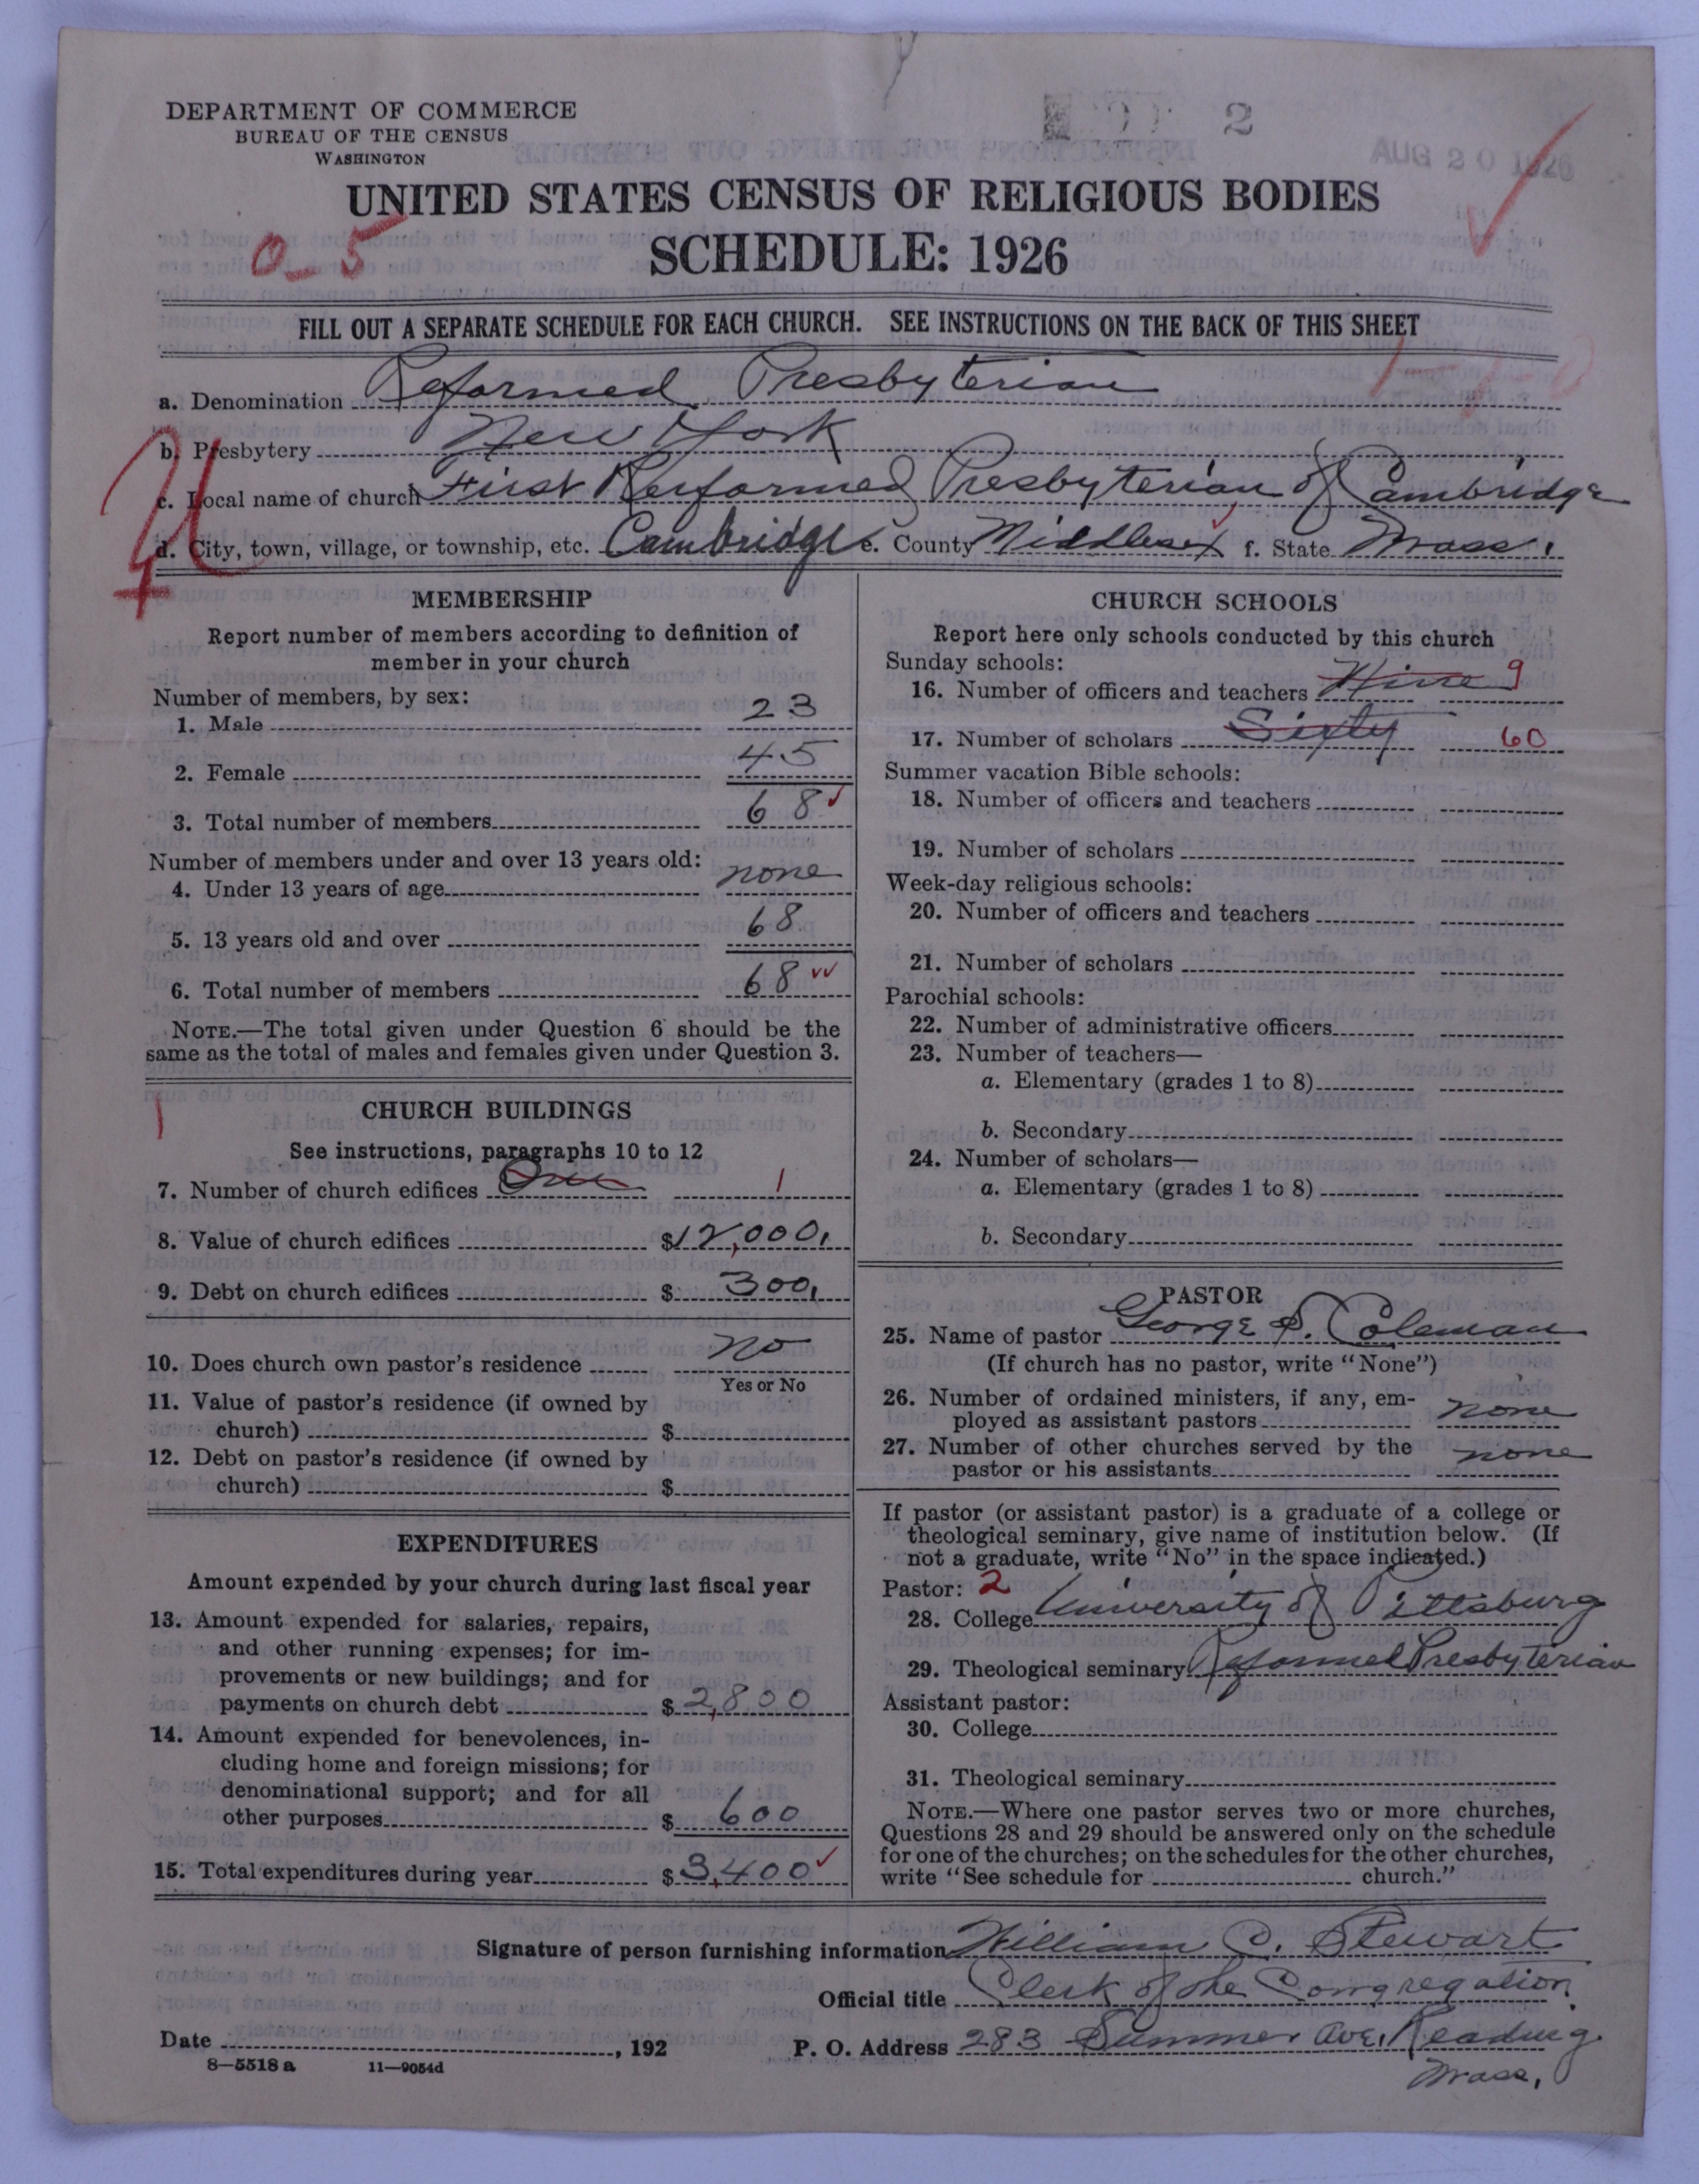 DEPARTMENT OF COMMERCE
BUREAU OF THE CENSUS
WASHINGTON
2
AUG 20 1926
UNITED STATES CENSUS OF RELIGIOUS BODIES
0-5
SCHEDULE: 1926
FILL OUT A SEPARATE SCHEDULE FOR EACH CHURCH. SEE INSTRUCTIONS ON THE BACK OF THIS SHEET
a. Denomination Reformed Presbyterian
b. Presbytery New York
c. Local name of church First Reformed Presbyterian of Cambridge
d. City, town, village, or township, etc. Cambridge e. County Middlesex f. State Mass.
MEMBERSHIP
Report number of members according to definition of
member in your church
Number of members, by sex:
1. Male 23
2. Female 45
3. Total number of members 68
Number of members under and over 13 years old:
4. Under 13 years of age none
5. 13 years old and over 68
6. Total number of members 68
NOTE.—The total given under Question 6 should be the
same as the total of males and females given under Question 3.
CHURCH BUILDINGS
See instructions, paragraphs 10 to 12
7. Number of church edifices One 1
8. Value of church edifices $12,000.
9. Debt on church edifices $300.
10. Does church own pastor's residence No
Yes or No
11. Value of pastor's residence (if owned by
church) $
12. Debt on pastor's residence (if owned by
church) $
EXPENDITURES
Amount expended by your church during last fiscal year
13. Amount expended for salaries, repairs,
and other running expenses; for im-
provements or new buildings; and for
payments on church debt $2,800
14. Amount expended for benevolences, in-
cluding home and foreign missions; for
denominational support; and for all
other purposes $600
15. Total expenditures during year $3,400
CHURCH SCHOOLS
Report here only schools conducted by this church
Sunday schools:
16. Number of officers and teachers Nine 9
17. Number of scholars Sixty 60
Summer vacation Bible schools:
18. Number of officers and teachers
19. Number of scholars
Week-day religious schools:
20. Number of officers and teachers
21. Number of scholars
Parochial schools:
22. Number of administrative officers
23. Number of teachers—
a. Elementary (grades 1 to 8)
b. Secondary
24. Number of scholars—
a. Elementary (grades 1 to 8)
b. Secondary
PASTOR
25. Name of pastor George S. Coleman
(If church has no pastor, write "None")
26. Number of ordained ministers, if any, em-
ployed as assistant pastors none
27. Number of other churches served by the
pastor or his assistants none
If pastor (or assistant pastor) is a graduate of a college or
theological seminary, give name of institution below. (If
not a graduate, write "No" in the space indicated.)
Pastor: 2
28. College University of Pittsburg
29. Theological seminary Reformed Presbyterian
Assistant pastor:
30. College
31. Theological seminary
NOTE.—Where one pastor serves two or more churches,
Questions 28 and 29 should be answered only on the schedule
for one of the churches; on the schedules for the other churches,
write "See schedule for church."
Signature of person furnishing information William C. Stewart
Official title Clerk of the Congregation.
Date , 192
P. O. Address 283 Summer Ave. Reading.
Mass.
8—5518 a 11—9054d